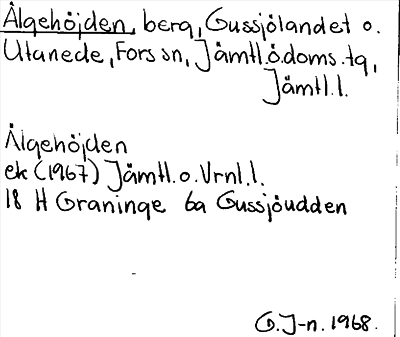 Älgehöjden, berg, Gussjölandet o.
Utanede, Fors sn, Jämtl.ö.doms.tg,
Jämtl.l.
Älgehöjden
ek (1967) Jämtl. o. Vrnl.l.
18 H Graninge 6a Gussjöudden
G.J-n. 1968.